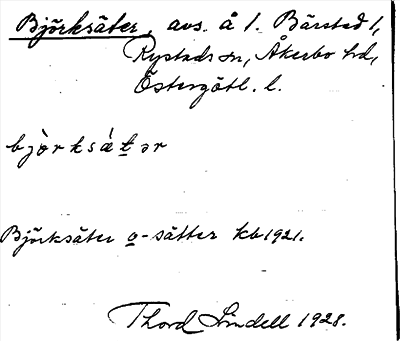 Björksäter, avs. å 1. Bärstad 1,
Rystads sn, Åkerbo hd,
Östergötl. l.
bjò̀rksä́tər
Björksäter o-sätter kb 1921.
Thord Lindell 1928.